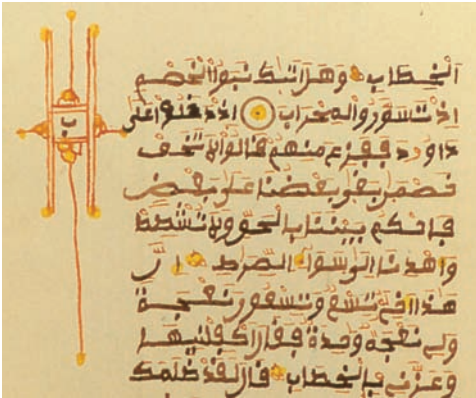 ب
الخطاب وهل اتيك نبؤا الخصم
اذ تسوروا المحراب اذ دخلوا على
داود ففزع منهم قالوا لا تخف
خصمن بغى بعضنا على بعض
فاحكم بيننا بالحق ولا تشطط
واهدنا الى سواء الصرط ان
هذا اخي تسع وتسعون نعجة
ولي نعجة وحدة فقال اكفلنيها
وعزني في الخطاب قال لقد ظلمك